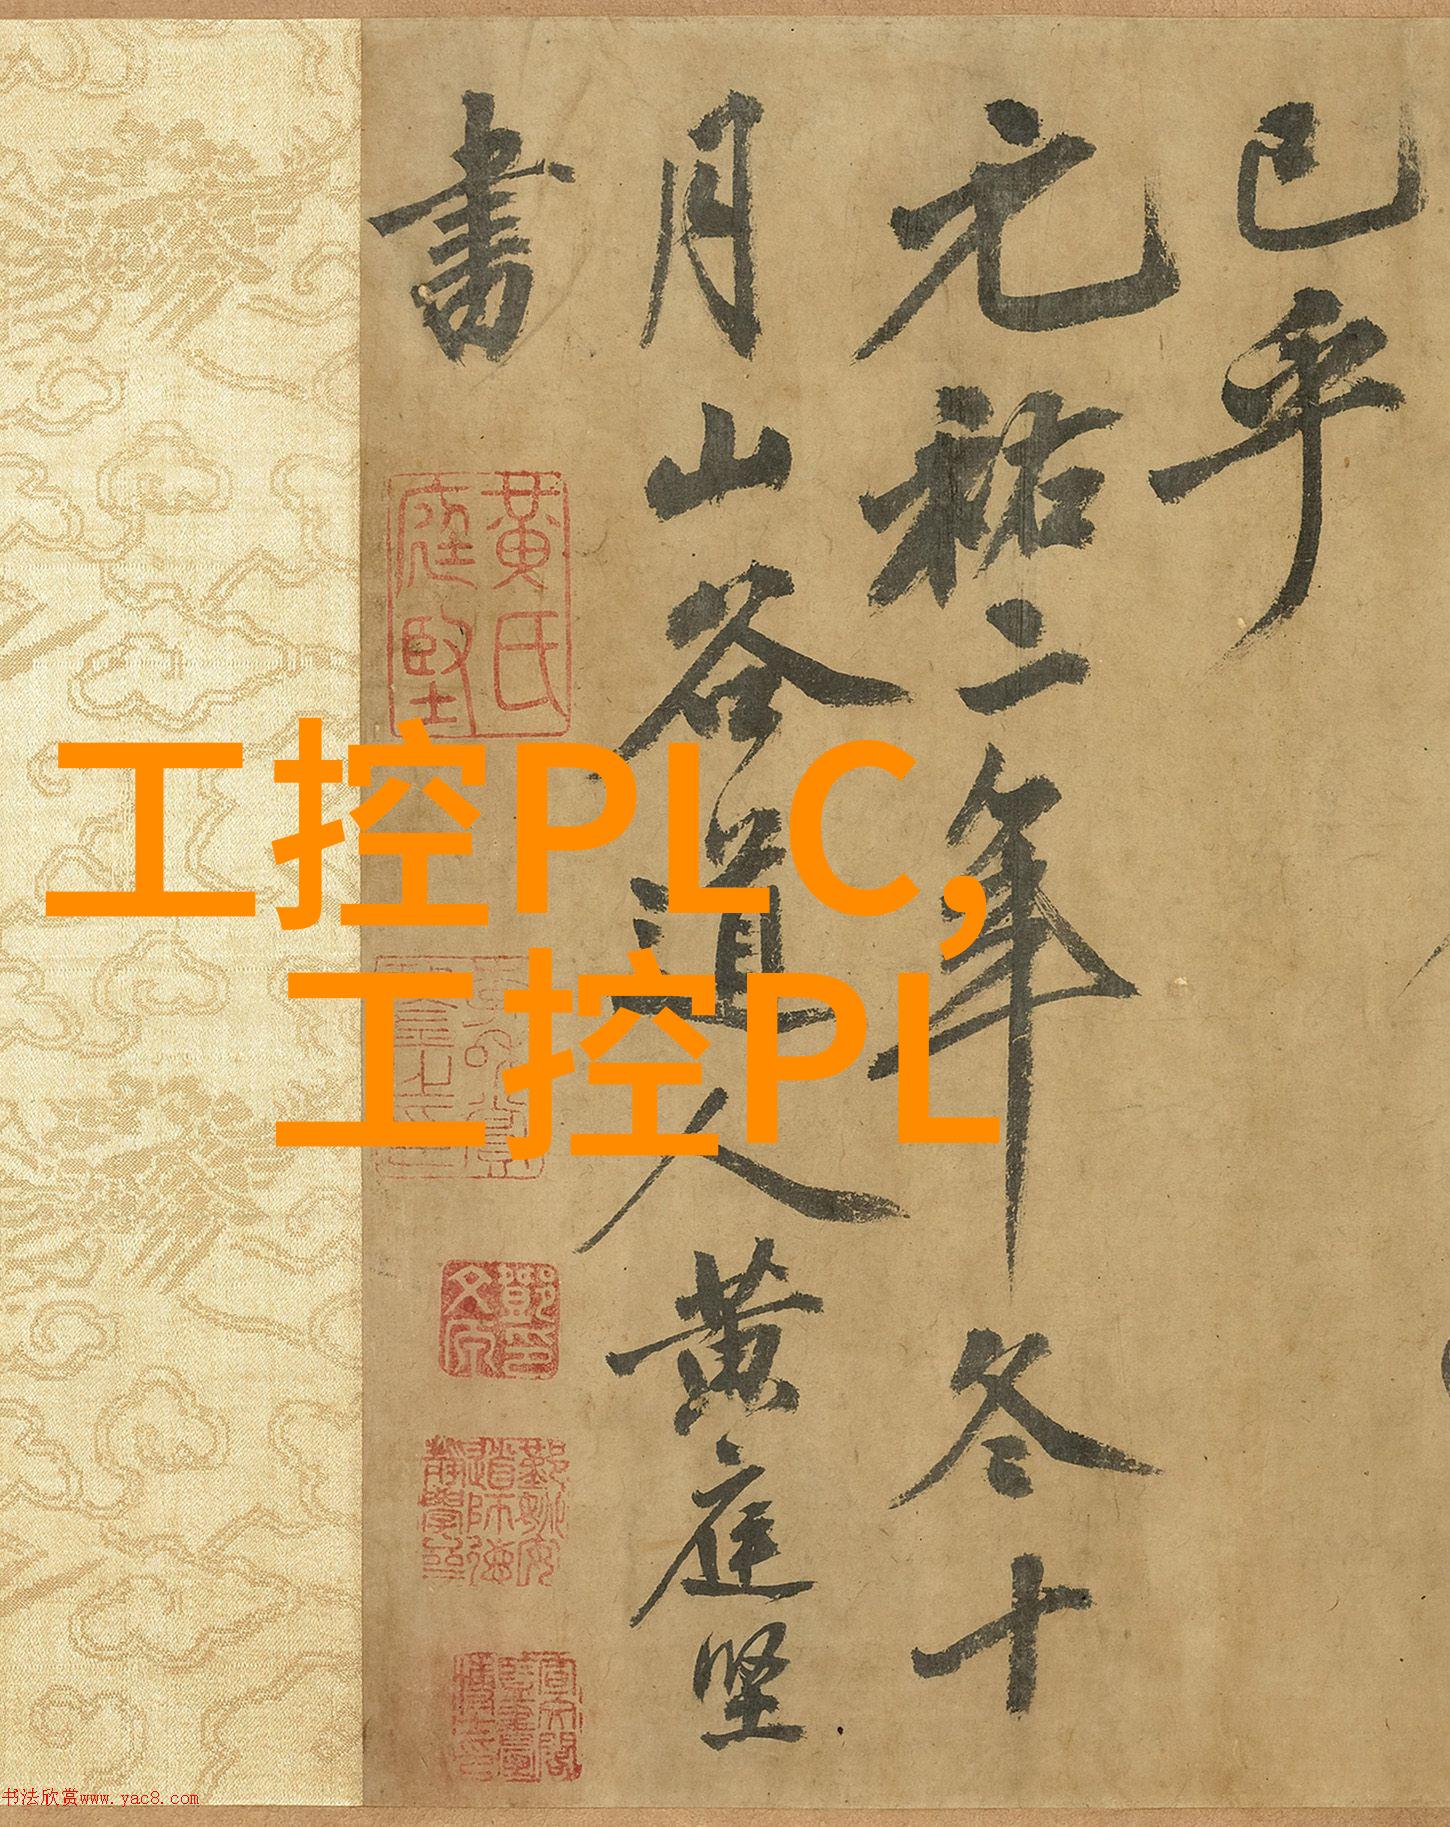 已乎
元祐二年冬十
月山谷道人黄庭坚
書
黄氏
庭堅
工控PLC,
工控PL
书法欣赏www.yac8.com